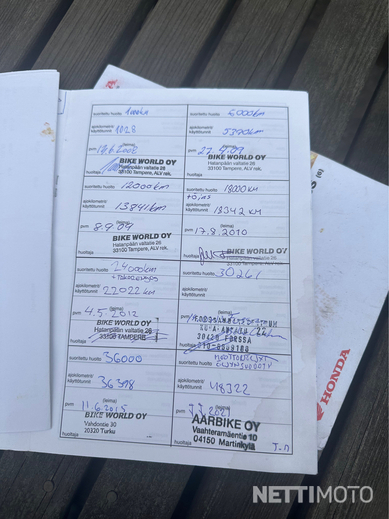 suoritettu huolto 1000km
ajokilometrit/
käyttötunnit 1028
pvm 18.6.2008 (leima)
BIKE WORLD OY
Hatanpään valtatie 26
33100 Tampere, ALV rek.
huoltaja
suoritettu huolto 6000km
ajokilometrit/
käyttötunnit
pvm 27.4.09 (leima)
BIKE WORLD OY
Hatanpään valtatie 26
33100 Tampere, ALV rek.
huoltaja
suoritettu huolto 12000km
ajokilometrit/
käyttötunnit 13841km
pvm 8.9.09 (leima)
BIKE WORLD OY
Hatanpään valtatie 26
33100 Tampere, ALV rek.
huoltaja
suoritettu huolto 18000KM
+öljyt
ajokilometrit/
käyttötunnit 18342 KM
pvm 17.8.2010 (leima)
BIKE WORLD OY
Hatanpään valtatie 26
33100 Tampere, ALV rek.
huoltaja
suoritettu huolto 24000km
ajokilometrit/
käyttötunnit 22022 km
pvm 4.5.2012 (leima)
BIKE WORLD OY
Hatanpään valtatie 26
33100 TAMPERE
huoltaja
suoritettu huolto 30261
ajokilometrit/
käyttötunnit
30420 FORSSA
huoltaja
suoritettu huolto 36000
ajokilometrit/
käyttötunnit 36398
pvm 11.6.2015 (leima)
BIKE WORLD OY
Vahdontie 30
20320 Turku
huoltaja
suoritettu huolto
ajokilometrit/
käyttötunnit 48322
pvm (leima)
AARBIKE OY
Vaahteramäentie 10
04150 Martinkylä
huoltaja J.M
HONDA
NETTIMOTO